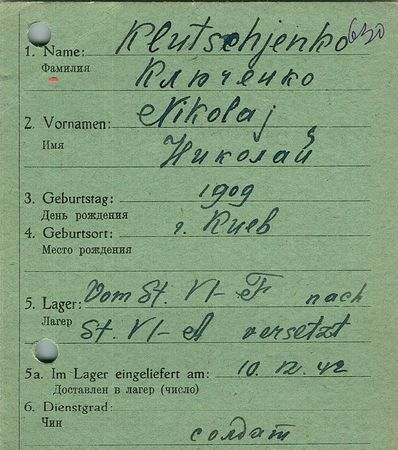 Klutschjenko 630
1. Name:
Фамилия
Ключенко
Nikolaj
2. Vornamen:
Имя
Николай
3. Geburtstag: 1909
День рождения
4. Geburtsort: г. Киев
Место рождения
5. Lager: Vom St. VI-F nach
Лагер
St. VI-A versetzt
5a. Im Lager eingeliefert am: 10. 12. 42
Доставлен в лагер (число)
6. Dienstgrad:
Чин
солдат